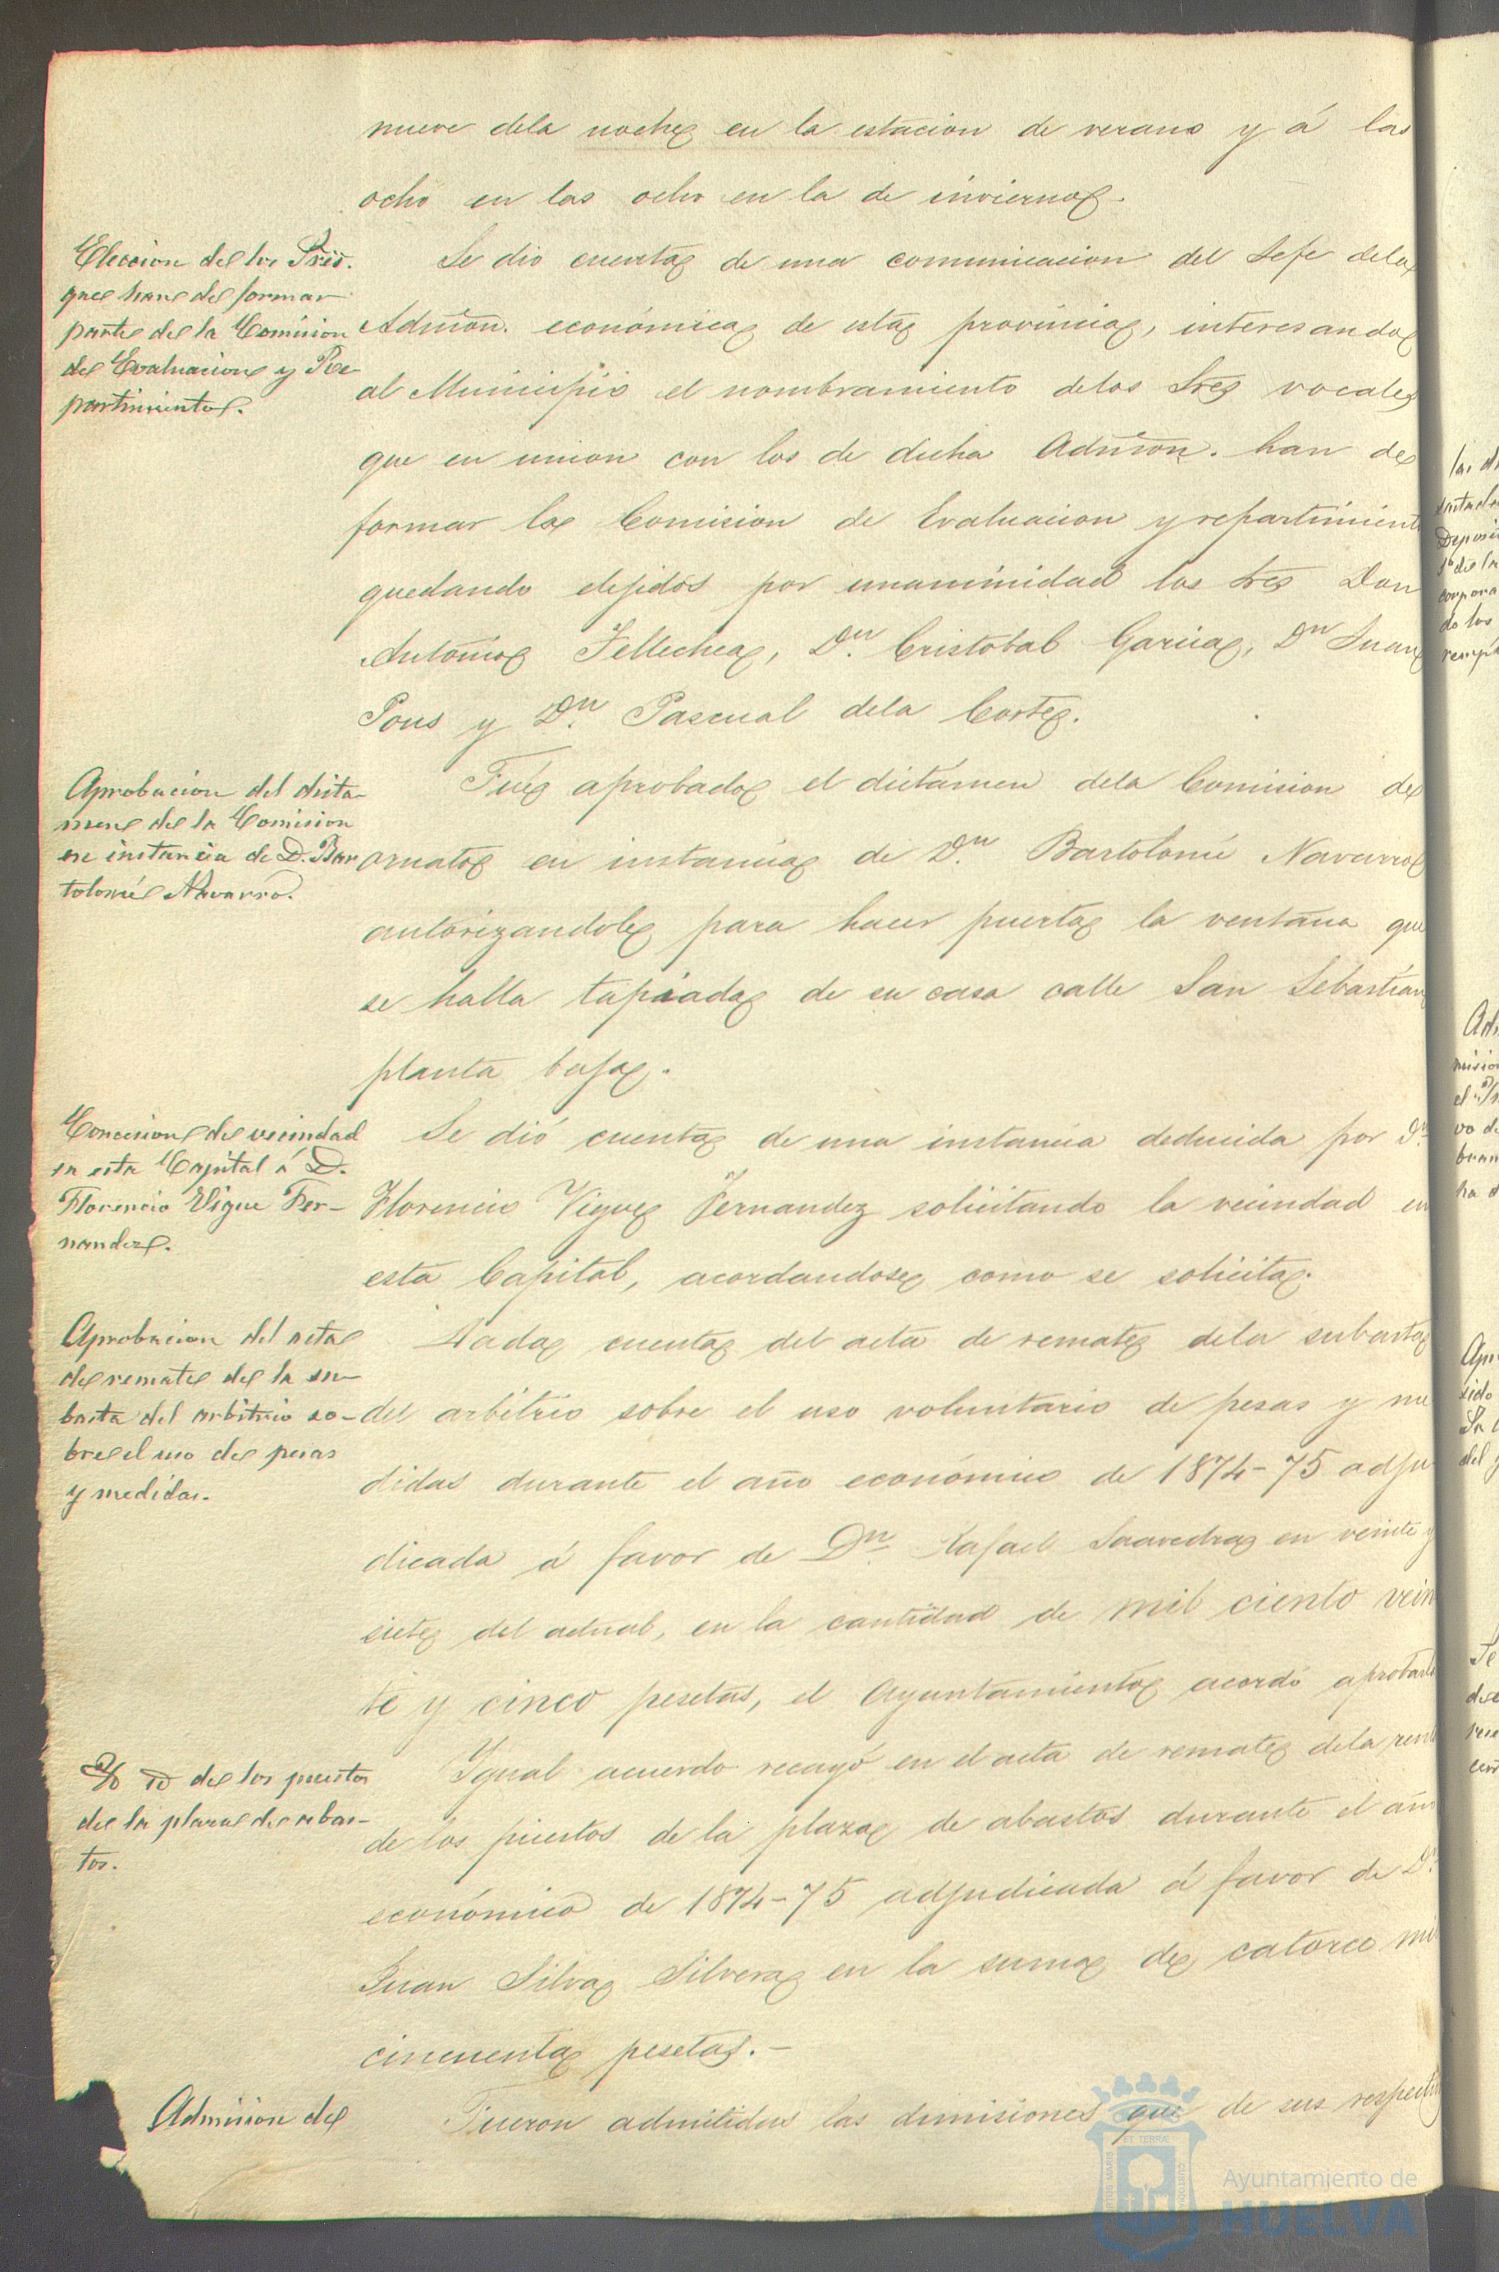 nueve dela noche en la estacion de verano y á las
ocho en las ocho en la de invierno.
Eleccion de los Sres.
que han de formar
parte de la Comision
de Evaluacion y Re
partimiento.
Se dio cuenta de una comunicacion del Jefe dela
Admon. económica de esta provincia, interesando
al Municipio el nombramiento delos Sres vocales
que en union con los de dicha Admon. han de
formar la Comision de Evaluacion y repartimient
quedando elejidos por unanimidad los Sres Don
Antonio Tellechea, Dn. Cristobal Garcia, Dn Juan
Pons y Dn. Pascual dela Corte.
Aprobacion del dicta-
men de la Comision
en instancia de D. Bar
tolomé Navarro.
Fué aprobado el dictámen dela Comision de
ornato en instancia de Dn. Bartolomé Navarro
autorizandole para hacer puerta la ventana que
se halla tapiada de su casa calle San Sebastian
planta baja.
Concesion de vecindad
en esta Capital á D.
Florencio Vigue Fer-
nandez.
Se dió cuenta de una instancia deducida por Dn.
Florencio Vigue Fernandez solicitando la vecindad en
esta Capital, acordandose como se solicita.
Aprobacion del acta
de remate de la su-
basta del arbitrio so-
bre el uso de pesas
y medidas.
Dada cuenta del acta de remate dela subasta
del arbitrio sobre el uso voluntario de pesas y me
didas durante el año económico de 1874-75 adju
dicada á favor de Dn. Rafael Saavedra en veinte y
siete del actual, en la cantidad de mil ciento vein
te y cinco pesetas, el Ayuntamiento acordó aprobarlo
Yd Yd de los puestos
de la plaza de abas-
tos.
Ygual acuerdo recayó en el acta de remate dela renta
de los puestos de la plaza de abastos durante el año
económico de 1874-75 adjudicada á favor de Dn.
Juan Silva Silvera en la suma de catorce mil
cincuenta pesetas.-
Admision de
Fueron admitidas las dimisiones que de sus respecti
Ayuntamiento de
HUELVA